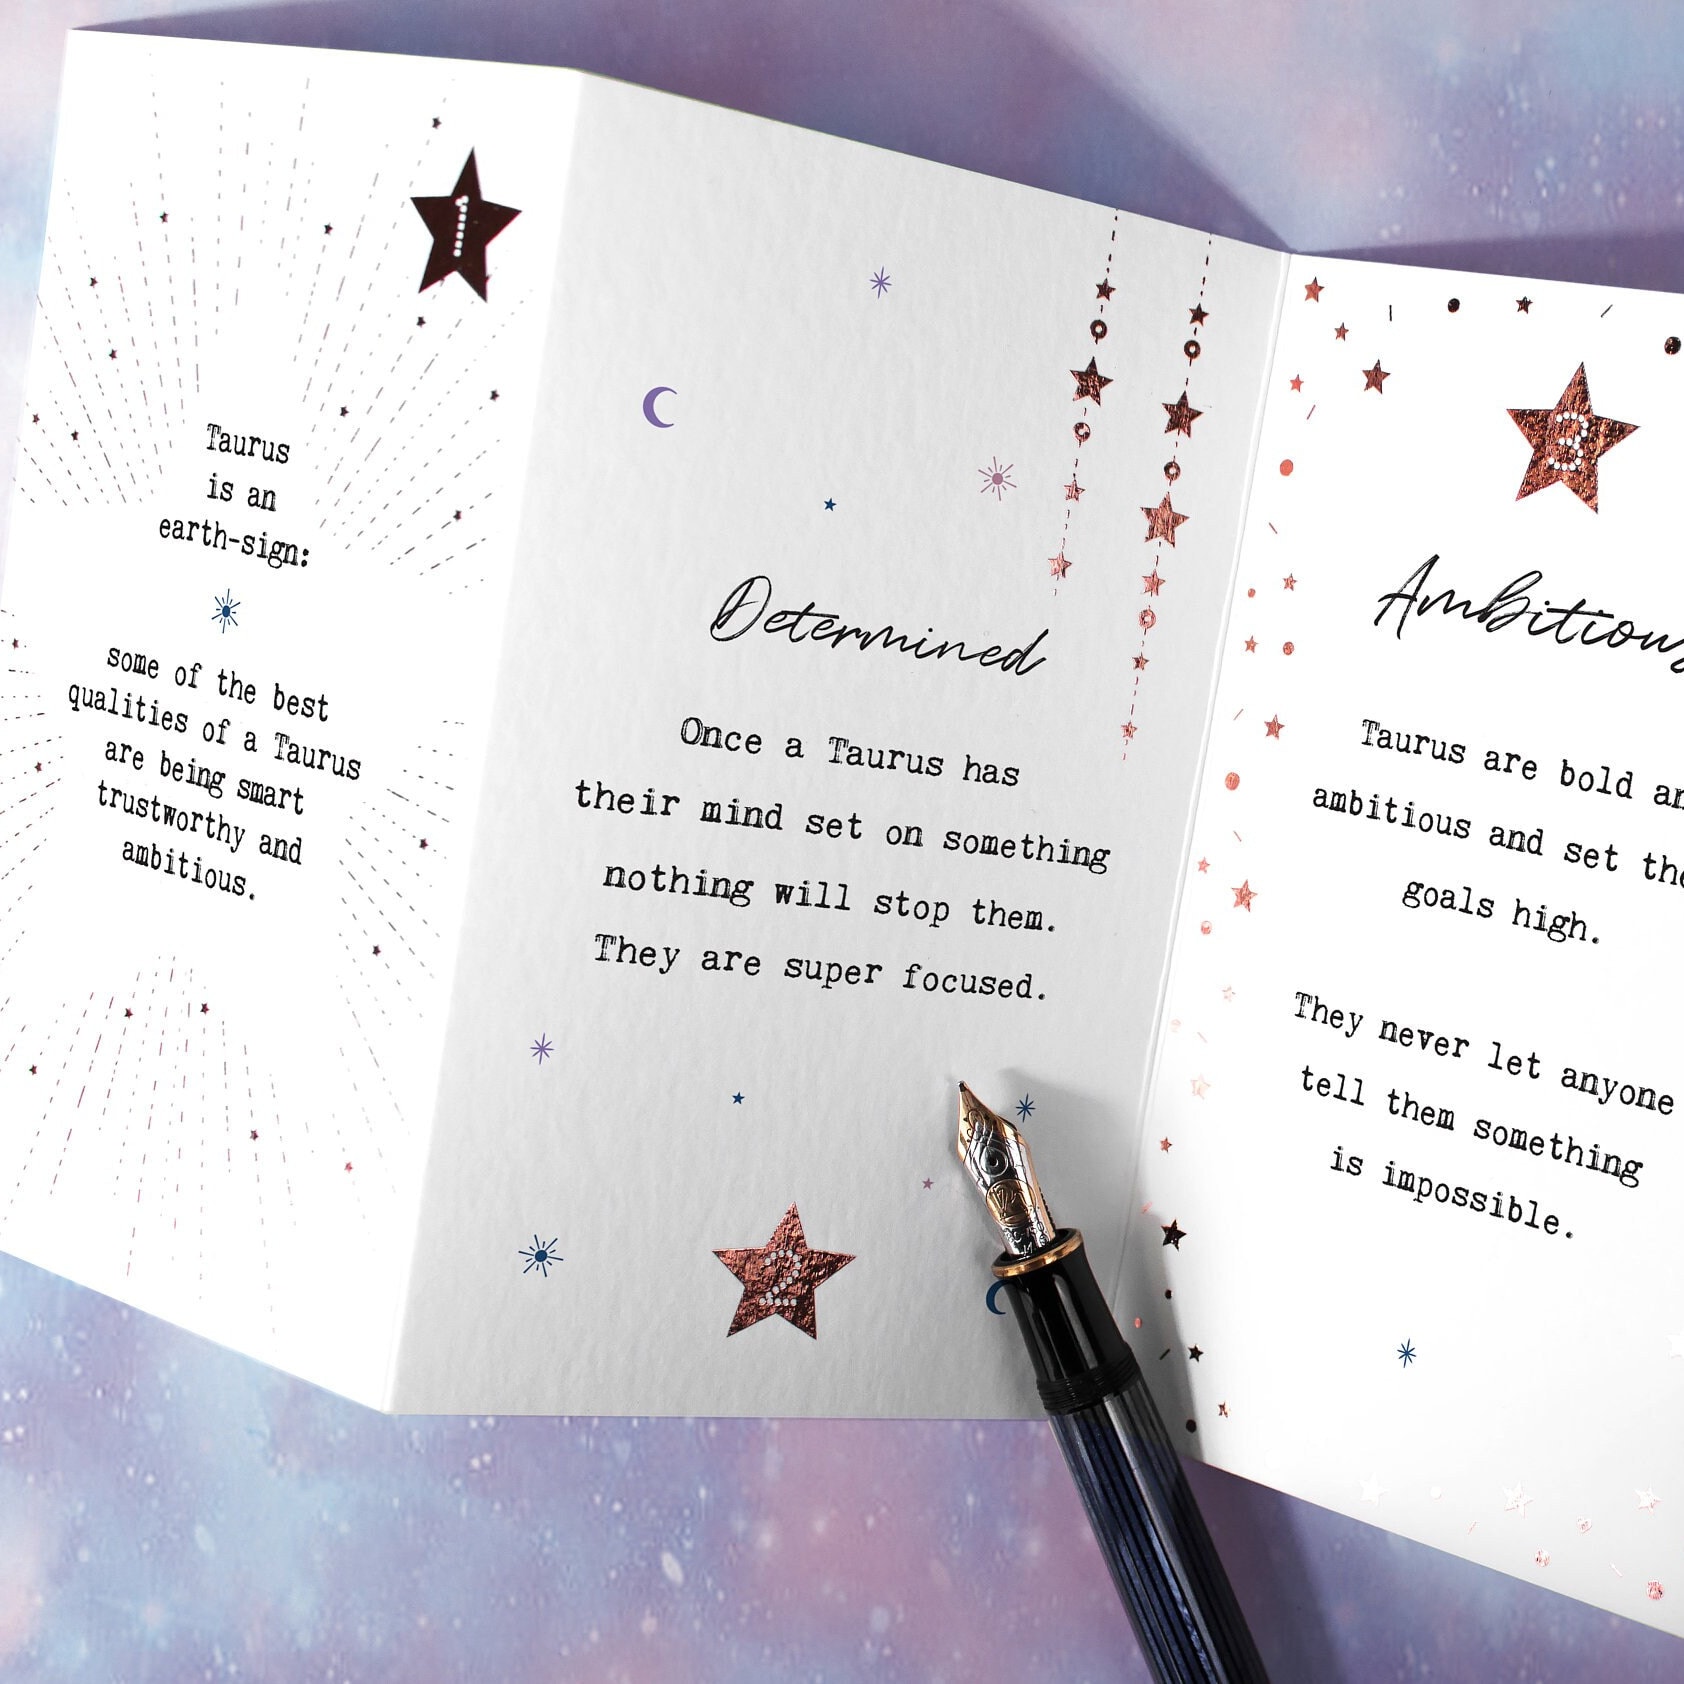 1
Taurus
is an
earth-sign:
some of the best
qualities of a Taurus
are being smart
trustworthy and
ambitious.
Determined
Once a Taurus has
their mind set on something
nothing will stop them.
They are super focused.
2
3
Ambitious
Taurus are bold
ambitious and set
goals high.
They never let anyone
tell them something
is impossible.